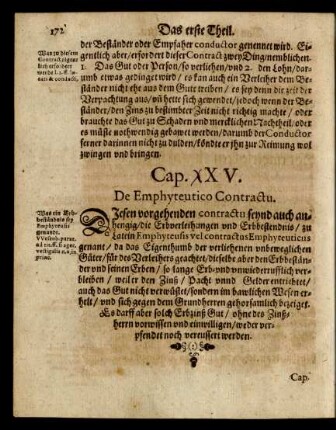 172
Das erste Theil.
der Beständer oder Empfaher conductor genennet wird. Ei-
gentlich aber/erfordert dieser Contract zwey Ding/nemblichen
Das Gut oder Person/so verliehen/und 2. den Lohn/dar-
umb etwas gedinget wird/ es kan auch ein Verleiher dem Be-
ständer nicht ehe aus dem Gute treiben / es sey denn die zeit der
Verpachtung aus/uñ hette sich gewendet/jedoch wenn der Be-
ständer/den Zins zu bestimbter Zeit nicht richtig machte / oder
brauchte das Gut zu Schaden und mercklichen Nachtheil/oder
es müste nothwendig gebawet werden/darumb der Conductor
ferner darinnen nicht zu dulden/köndte er jhn zur Reimung wol
zwingen und bringen.
Was zu diesem
Contract eigent
lich erfordert
werde
locati & conducti.
Cap. XXV.
De Emphyteutico Contractu.
Was ein Erb-
beständnis sey
Emphyteusis
genandt.
DIesen vorgehenden contractu seynd auch an-
hengig/die Erbverleihungen und Erbbeständnis/ zu
Latein Emphyteusis vel contractus Emphyteuticus
genant/ da das Eigenthumb der verliehenen unbeweglichen
Güter/für des Verleihers geachtet/dieselbe aber den Erbbestän-
der und seinen Erben/ so lange Erb-und unwiederrufflich ver-
bleiben/ weil er den Zinß/ Pacht unnd Gelder entrichtet/
auch das Gut nicht verwüstet/sondern im bawlichen Wesen er-
helt / und sich gegen dem Grundherren gehorsamlich bezeiget.
Es darff aber solch Erbzinß Gut / ohne des Zinß-
herrn vorwissen und einwilligen/weder ver-
pfendet noch vereussert werden.
Cap.